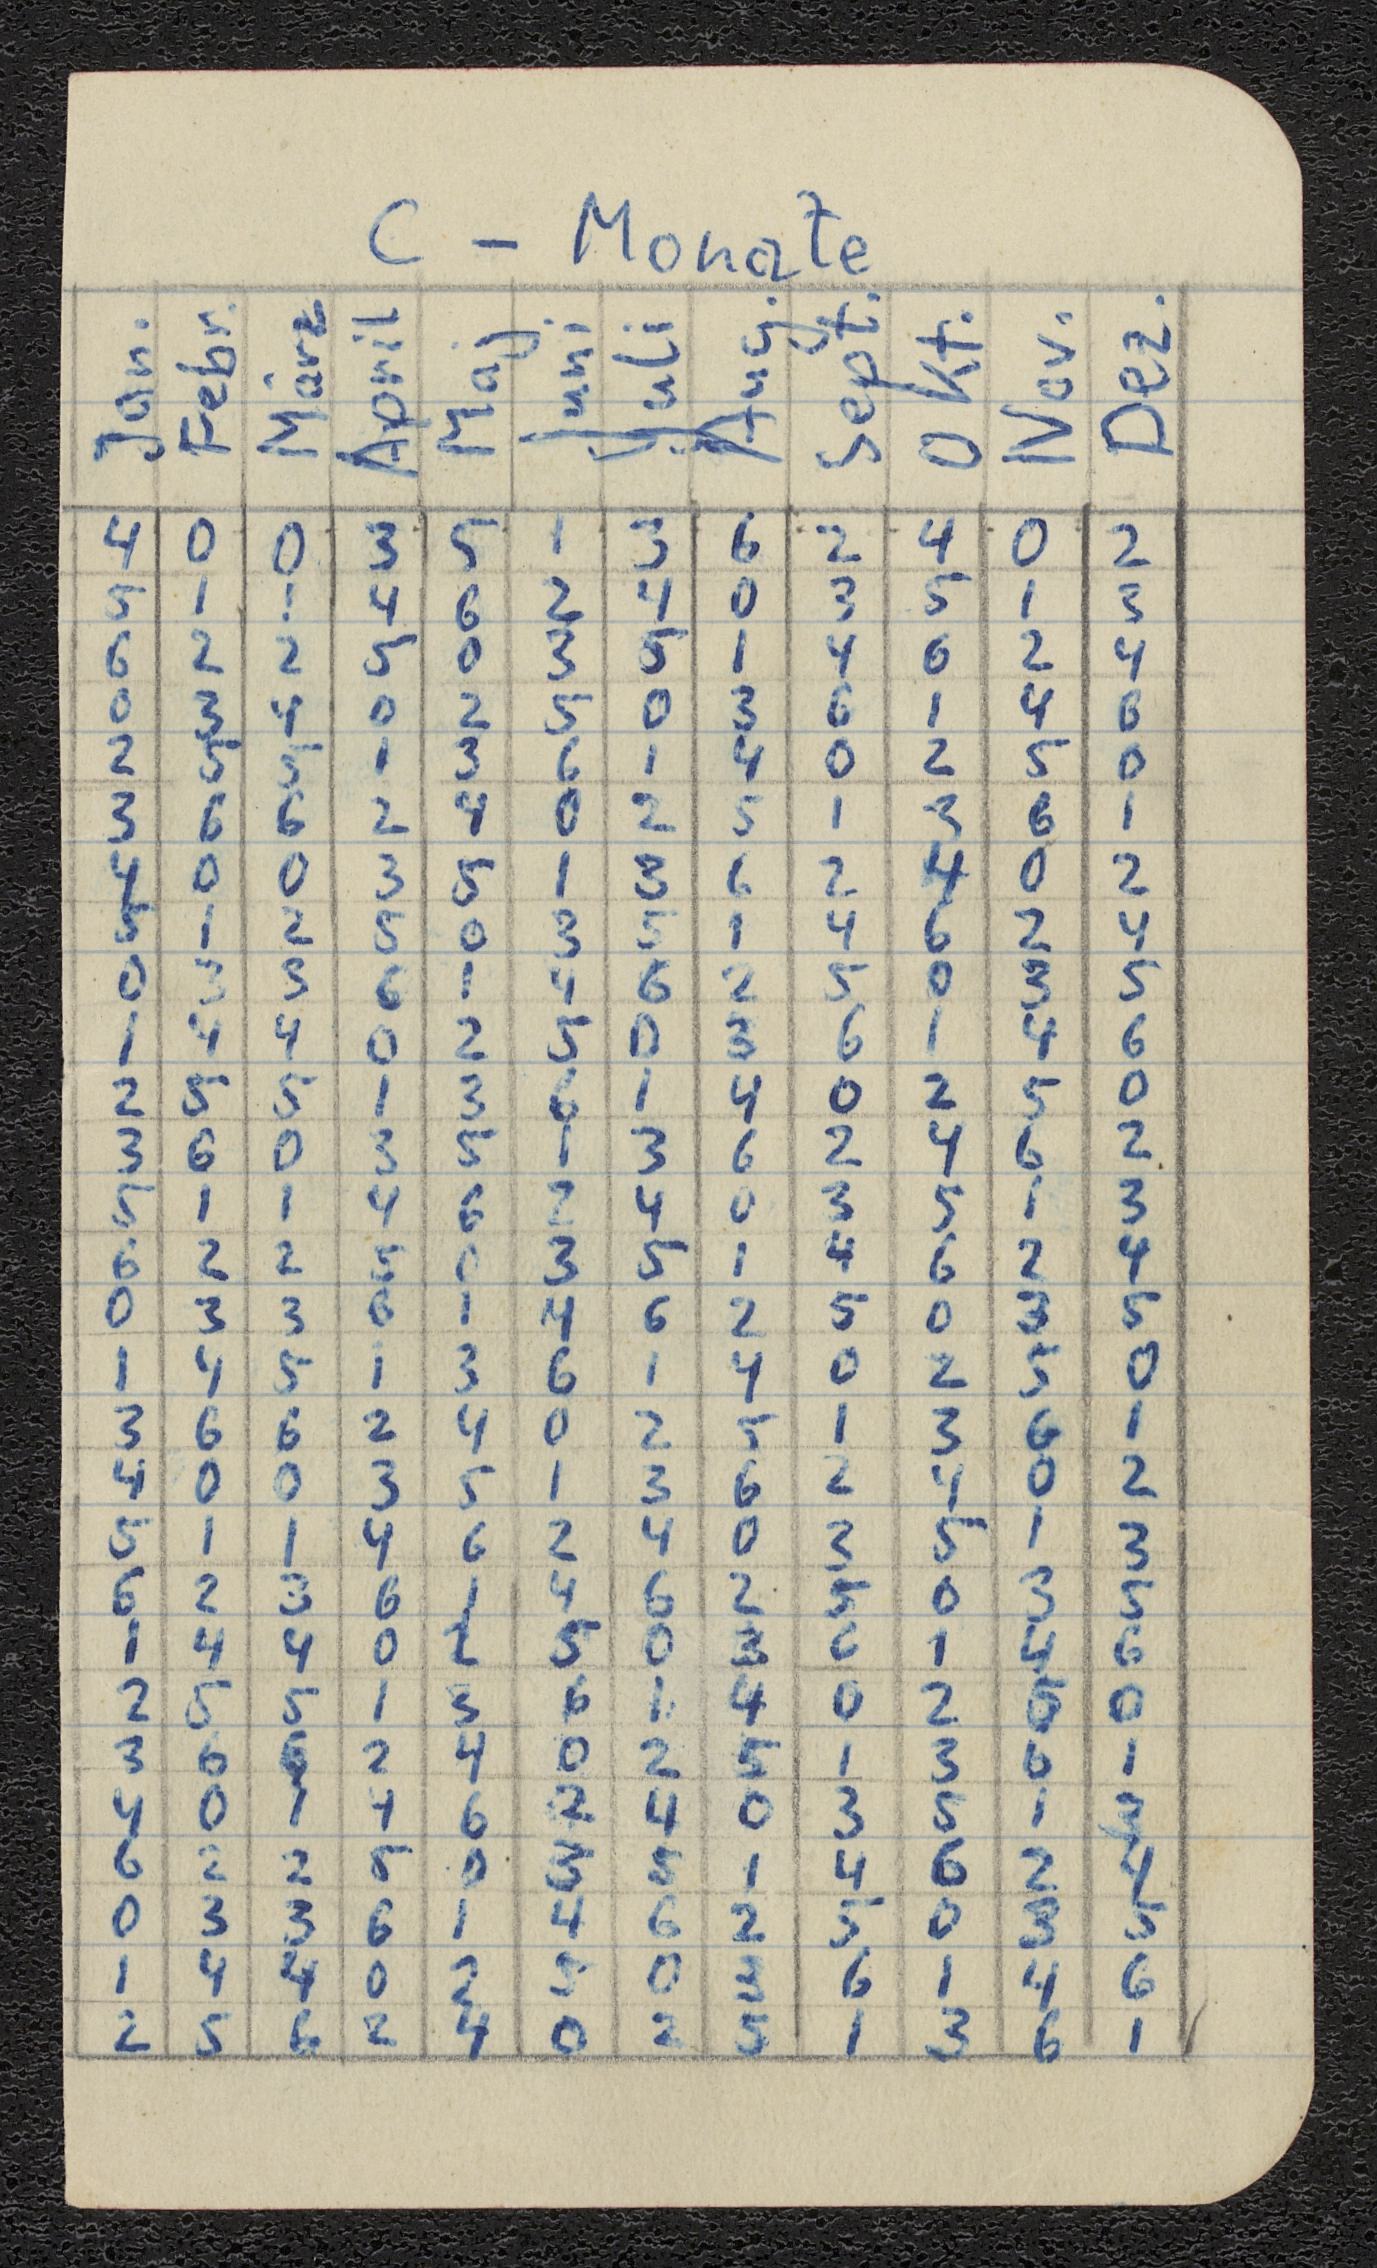 C - Monate
Jan. Febr. März April Maj Juni Juli Aug. Sept. Okt. Nov. Dez.
4 0 0 3 5 1 3 6 2 4 0 2
5 1 1 4 6 2 4 0 3 5 1 3
6 2 2 5 0 3 5 1 4 6 2 4
0 3 4 0 2 5 0 3 6 1 4 6
2 5 5 1 3 6 1 4 0 2 5 0
3 6 6 2 4 0 2 5 1 3 6 1
4 0 0 3 5 1 3 6 2 4 0 2
5 1 2 5 0 3 5 1 4 6 2 4
0 3 3 6 1 4 6 2 5 0 3 5
1 4 4 0 2 5 0 3 6 1 4 6
2 5 5 1 3 6 1 4 0 2 5 0
3 6 0 3 5 1 3 6 2 4 6 2
5 1 1 4 6 2 4 0 3 5 1 3
6 2 2 5 0 3 5 1 4 6 2 4
0 3 3 6 1 4 6 2 5 0 3 5
1 4 5 1 3 6 1 4 0 2 5 0
3 6 6 2 4 0 2 5 1 3 6 1
4 0 0 3 5 1 3 6 2 4 0 2
5 1 1 4 6 2 4 0 3 5 1 3
6 2 3 6 1 4 6 2 5 0 3 5
1 4 4 0 2 5 0 3 6 1 4 6
2 5 5 1 3 6 1 4 0 2 5 0
3 6 6 2 4 0 2 5 1 3 6 1
4 0 1 4 6 2 4 0 3 5 1 3
6 2 2 5 0 3 5 1 4 6 2 4
0 3 3 6 1 4 6 2 5 0 3 5
1 4 4 0 2 5 0 3 6 1 4 6
2 5 6 2 4 0 2 5 1 3 6 1